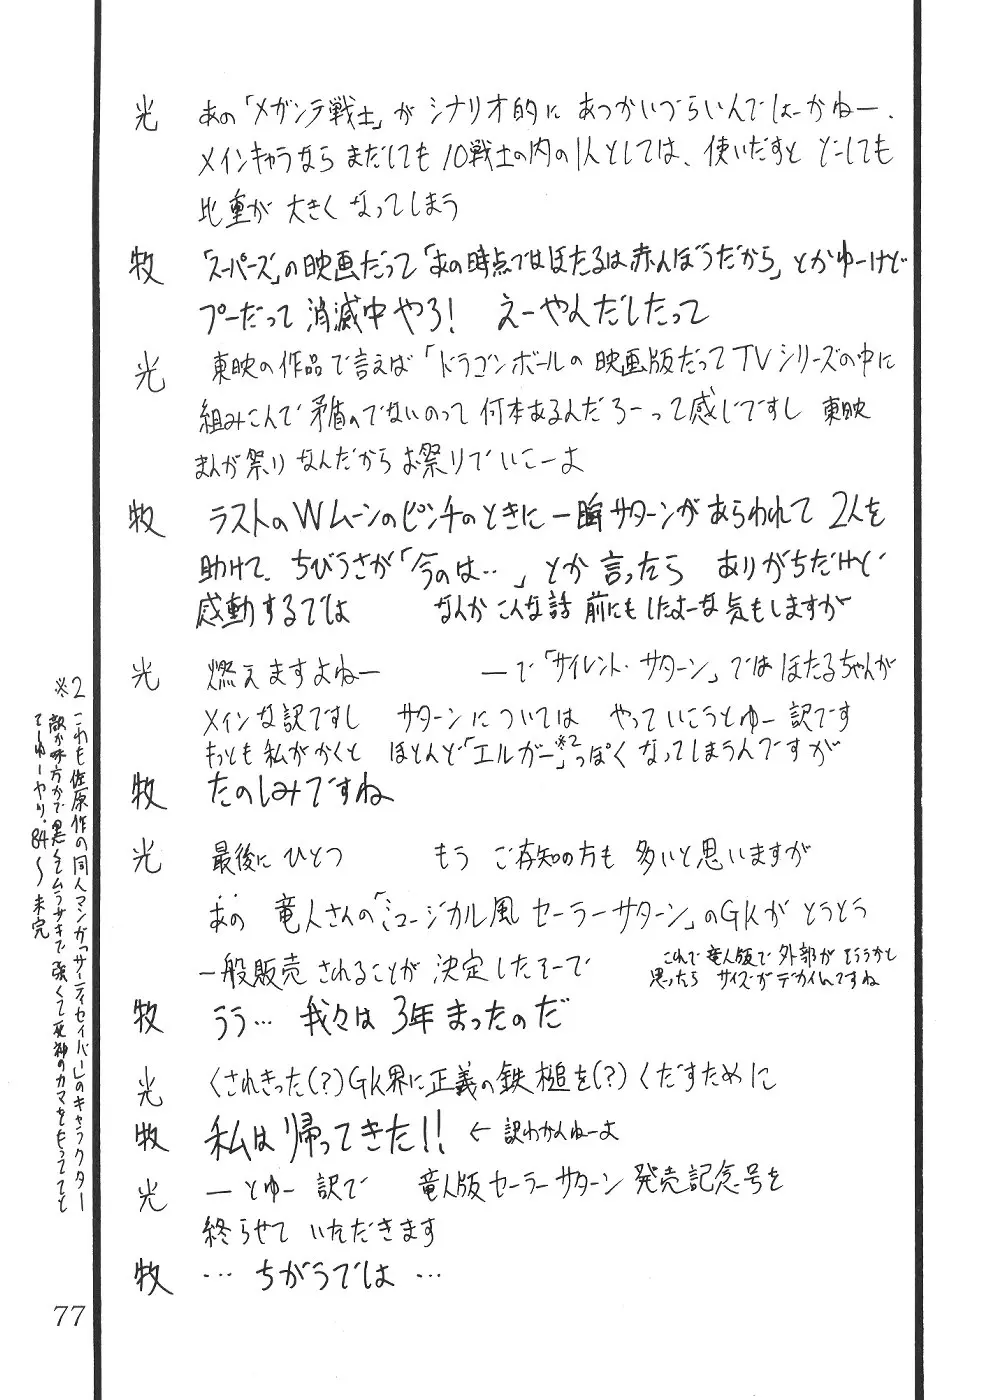 光 あの「メガンテ戦士」が シナリオ的に あつかいづらいんでしょーかねー、
メインキャラなら まだしても 10戦士の内の1人としては、使いだすと どーしても
比重が 大きく なってしまう
牧 「スーパーズ」の映画だって「あの時点ではほたるは赤んぼうだから」とかゆーけど
プーだって 消滅中やろ! えーやんだしたって
光 東映の作品で言えば「ドラゴンボールの映画版だってTVシリーズの中に
組みこんで矛盾のでないのって 何本あるんだろーって感じですし 東映
まんが祭りなんだから お祭りでいこーよ
牧 ラストのWムーンのピンチのときに 一瞬サターンがあらわれて 2人を
助けて、ちびうさが「今のは‥」とか 言ったら ありがちだけど
感動するでは なんか こんな話 前にもしたよーな気もしますが
光 燃えますよねー ーで「サイレント・サターン」では ほたるちゃんが
メインな訳ですし サターンについては やっていこうとゆー訳です
もっとも私がかくと ほとんど「エルガー」※2っぽく なってしまうんですが
牧 たのしみですね
光 最後に ひとつ もう ご存知の方も 多いと思いますが
あの 竜人さんの「ミュージカル風 セーラーサターン」のGKが とうとう
一般販売 されることが 決定したそーで
これで 竜人版で 外部が そろうかと
思ったら サイズが デカイんですね
牧 うう… 我々は 3年まったのだ
光 くされきった(?)GK界に正義の鉄槌を(?)くだすために
牧 私は 帰ってきた!! ← 訳わかんねーよ
光 ーとゆー訳で 竜人版セーラーサターン 発売記念号を
終らせて いただきます
牧 … ちがうでは …
※2 これも佐原作の同人マンガ「サイティセイバー」のキャラクター
敵か味方かで 黒くてムラサキで 強くて死神のカマをもってて
てーゆーヤツ。84〜未完
77